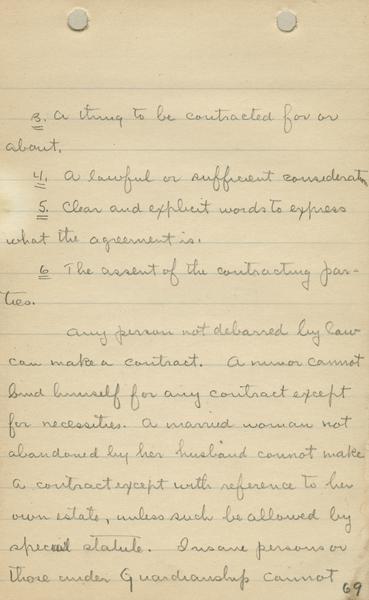 3. A thing to be contracted for or
about.
4. A lawful or sufficient consideration
5. Clear and explicit words to express
what the agreement is.
6 The assent of the contracting par-
ties.
Any person not debarred by law
can make a contract. A minor cannot
bind himself for any contract except
for necessities. A married woman not
abandoned by her husband cannot make
a contract except with reference to her
own estate, unless such be allowed by
special statute. Insane persons or
those under Guardianship cannot
69